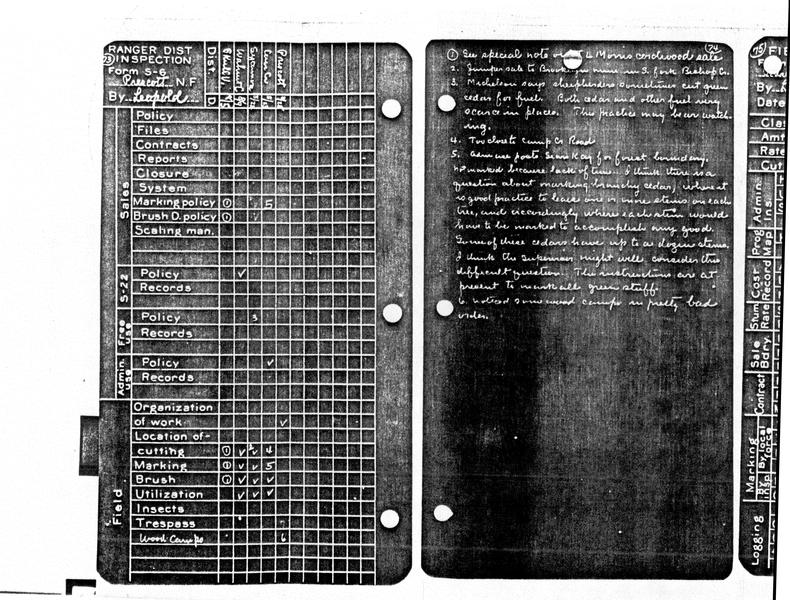 RANGER DIST
73 INSPECTION
Form S-6
Prescott N.F.
By Leopold
Dist.
D
Walnut
Sycamore
Camp Cr
Prescott
Sales
Policy
Files
Contracts
Reports
Closure
System
Marking policy ① 5
Brush D. policy ①
Scaling man.
S-22
Policy ✓
Records
Free use
Policy 3
Records
Admin. use
Policy ✓
Records
Field
Organization
of work ✓
Location of
cutting ① ✓ 4
Marking ① ✓ ✓ 5
Brush ① ✓ ✓ ✓
Utilization ✓ ✓ ✓
Insects
Trespass
Wood Camps 6
74
① See special note Morris cordwood sale
2. Juniper sale to mine in S. fork Bishop Cr.
3. Mickelson says sheepherders sometimes cut green
cedar for fuel. Both cedar and other fuel very
scarce in places. This practice may bear watch-
ing.
4. Too close to camp Cr Road
5. Admin use posts Sean Kay for forest boundary.
Not marked because lack of time. I think there is a
question about marking branchy cedar, where it
is good practice to leave one or more stems on each
tree, and accordingly where each stem would
have to be marked to accomplish any good.
Some of these cedars have up to a dozen stems.
I think the Supervisor might well consider this
difficult question. The instructions are at
present to mark all green stuff.
6. noticed some wood camps in pretty bad
order.
75
FIE
By
Date
Clas
Amt
Rate
Cut
Admin.
Ins.
Prog
Map
Cost
Record
Stum
Rate
Sale
Bdry.
Contract
Marking
By local force
By Insp
Logging